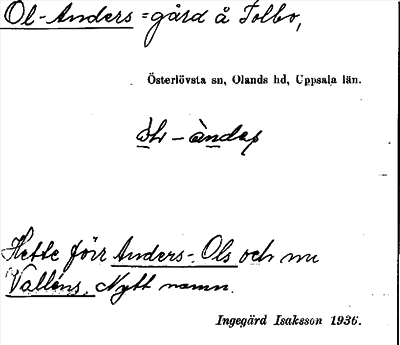 Ol-Anders=gård å Tolbo,
Österlövsta sn, Olands hd, Uppsala län.
Hette förr Anders-Ols och nu
Valléns. Nytt namn.
Ingegärd Isaksson 1936.